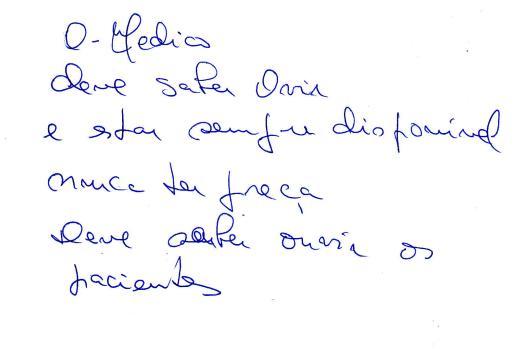 O-Medico
deve saber Ovir
e estar sempre disponivel
nunca ter preça
Deve saber ouvir os
pacientes